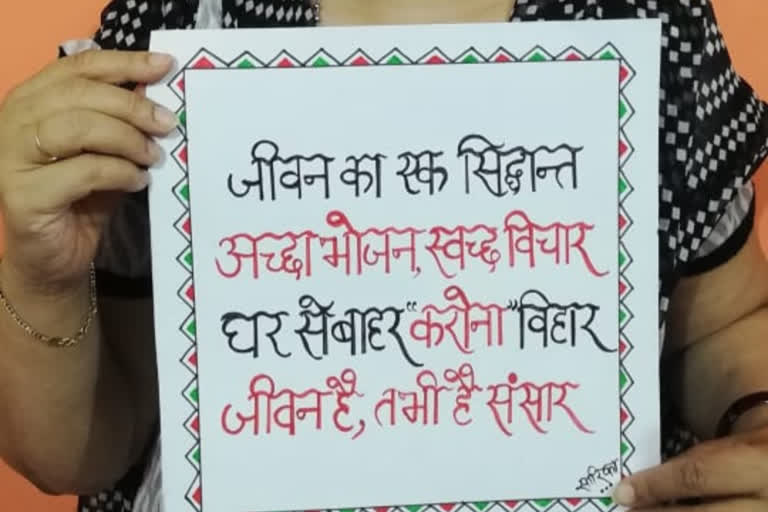 जीवन का एक सिद्धान्त
अच्छा भोजन, स्वच्छ विचार
घर से बाहर "करोना" विहार
जीवन है, तभी है संसार
सारिका...